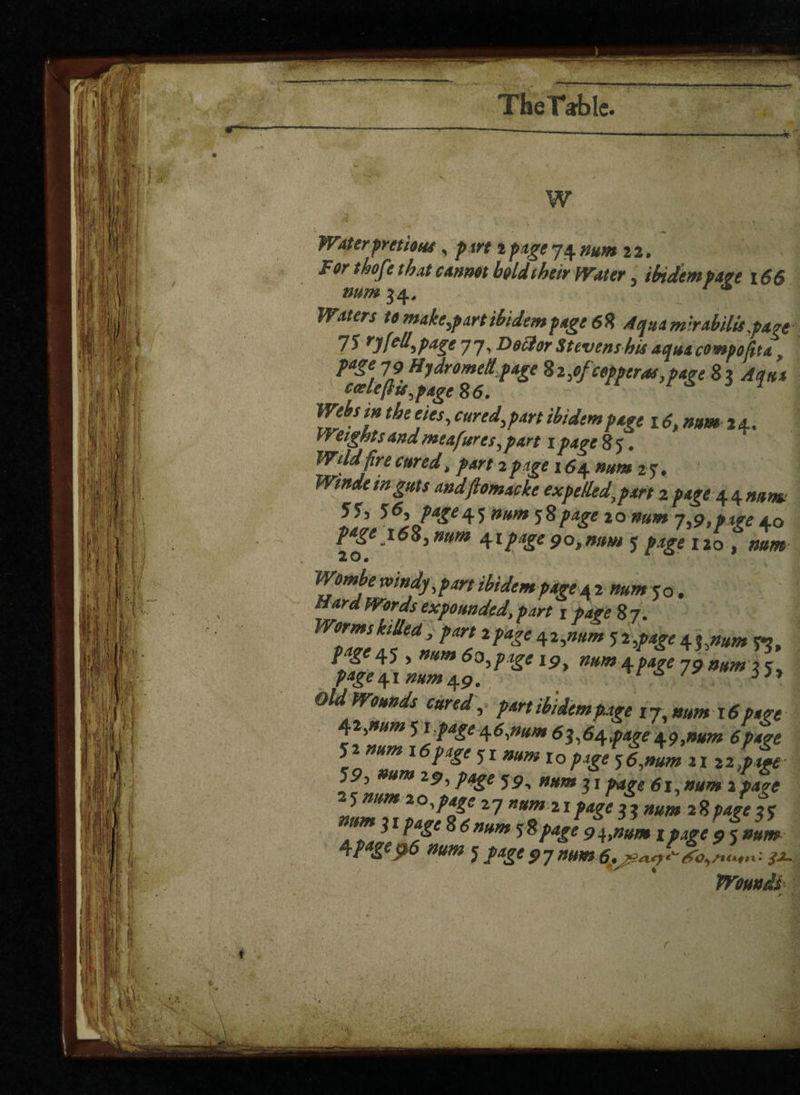 The Table.
W
Water pretious, part 2 page 74 num 22.
For those that cannot hold their Water, ibidem page 166
num 34.
Waters to make, part ibidem page 68 Aqua mirabilis, page
75 rysell, page 77, Doctor Stevens his aqua composita,
page 79 Hydromell. page 82, of copperas, page 83 Aqua
cœlestis, page 86.
Webs in the eies, cured, part ibidem page 16, num 24.
Weights and measures, part 1 page 85.
Wild fire cured, part 2 page 164 num 25.
Winde in guts and stomacke expelled, part 2 page 44 num
55, 56, page 45 num 58 page 20 num 7,9, page 40
page 168, num 41 page 90, num 5 page 120, num
20.
Wombe windy, part ibidem page 42 num 50.
Hard Words expounded, part 1 page 87.
Worms killed, part 2 page 42, num 52, page 43, num 53,
page 45, num 60, page 19, num 4 page 79 num 35,
page 41 num 49.
Old Wounds cured, part ibidem page 17, num 16 page
42, num 51. page 46, num 63, 64. page 49, num 6 page
52 num 16 page 51 num 10 page 56, num 21 22, page
59, num 29, page 59, num 31 page 61, num 2 page
25 num 20, page 27 num 21 page 33 num 28 page 35
num 31 page 86 num 58 page 94, num 1 page 95 num
4 page 96 num 5 page 97 num 6. page 60, num: 32
Wounds